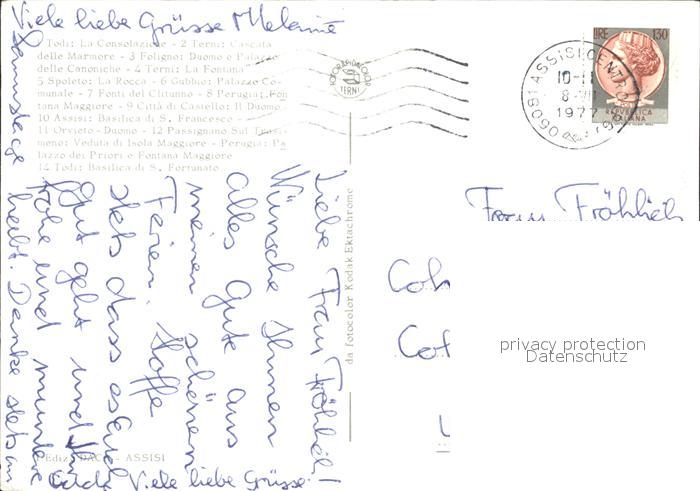 Viele liebe Grüsse Melanie
1 Todi: La Consolazione - 2 Terni: Cascata
delle Marmore - 3 Foligno: Duomo e Palazzo
delle Canoniche - 4 Terni: La Fontana
5 Spoleto: La Rocca - 6 Gubbio: Palazzo Co-
munale - 7 Fonti del Clitunno - 8 Perugia: Fon
tana Maggiore - 9 Città di Castello: Il Duomo
10 Assisi: Basilica di S. Francesco -
11 Orvieto - Duomo - 12 Passignano Sul Trasi-
meno: Veduta di Isola Maggiore - Perugia: Pa
lazzo dei Priori e Fontana Maggiore
14 Todi: Basilica di S. Fortunato
FOTORAPIDACOLOR
TERNI
06081 ASSISI CENTRO
1977
LIRE 130
REPUBBLICA
ITALIANA
Liebe Frau Fröhlich!
Wünsche Ihnen
alles Gute aus
meinen schönen
Ferien. Hoffe
stets dass es
gut geht und
frohe und munter
bleibt. Danke stets an
Viele liebe Grüsse.
da fotocolor Kodak Ektachrome
Ediz. DACA - ASSISI
Frau Fröhlich
privacy protection
Datenschutz